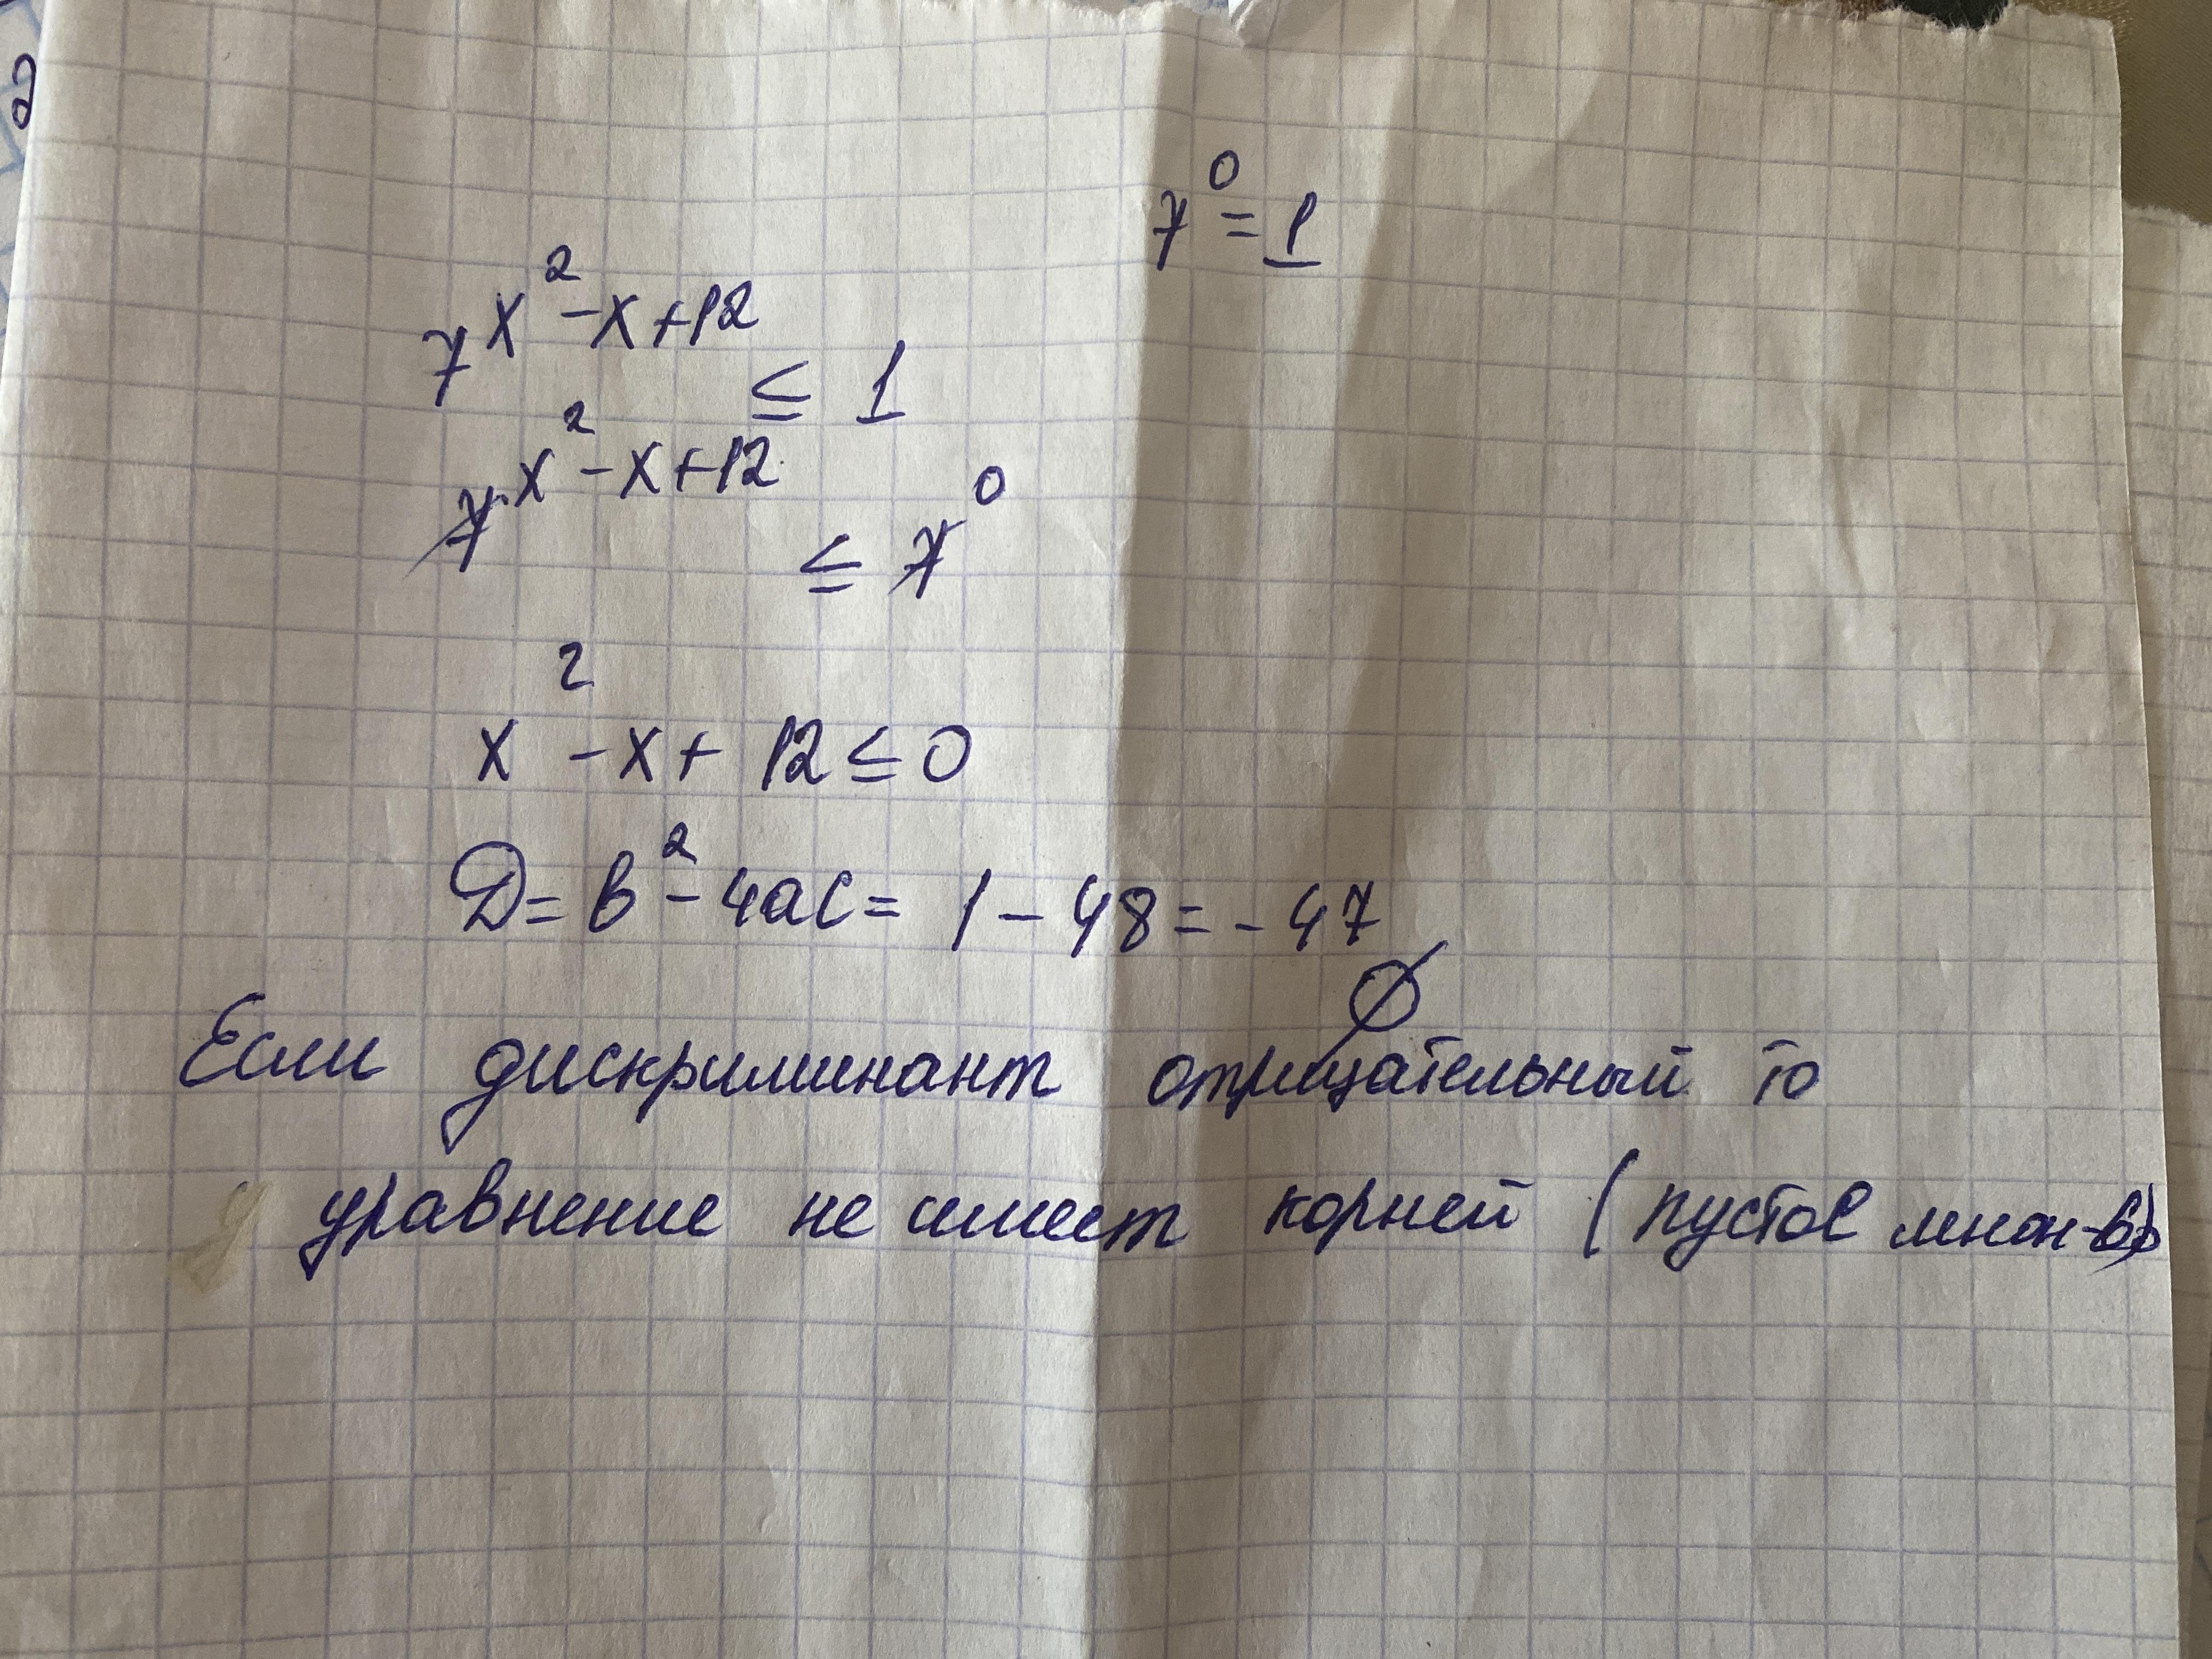 7⁰ = 1
7^(x² - x + 12) ≤ 1
7^(x² - x + 12) ≤ 7⁰
x² - x + 12 ≤ 0
D = b² - 4ac = 1 - 48 = - 47
∅
Если дискриминант отрицательный то
уравнение не имеет корней (пустое множ-во)